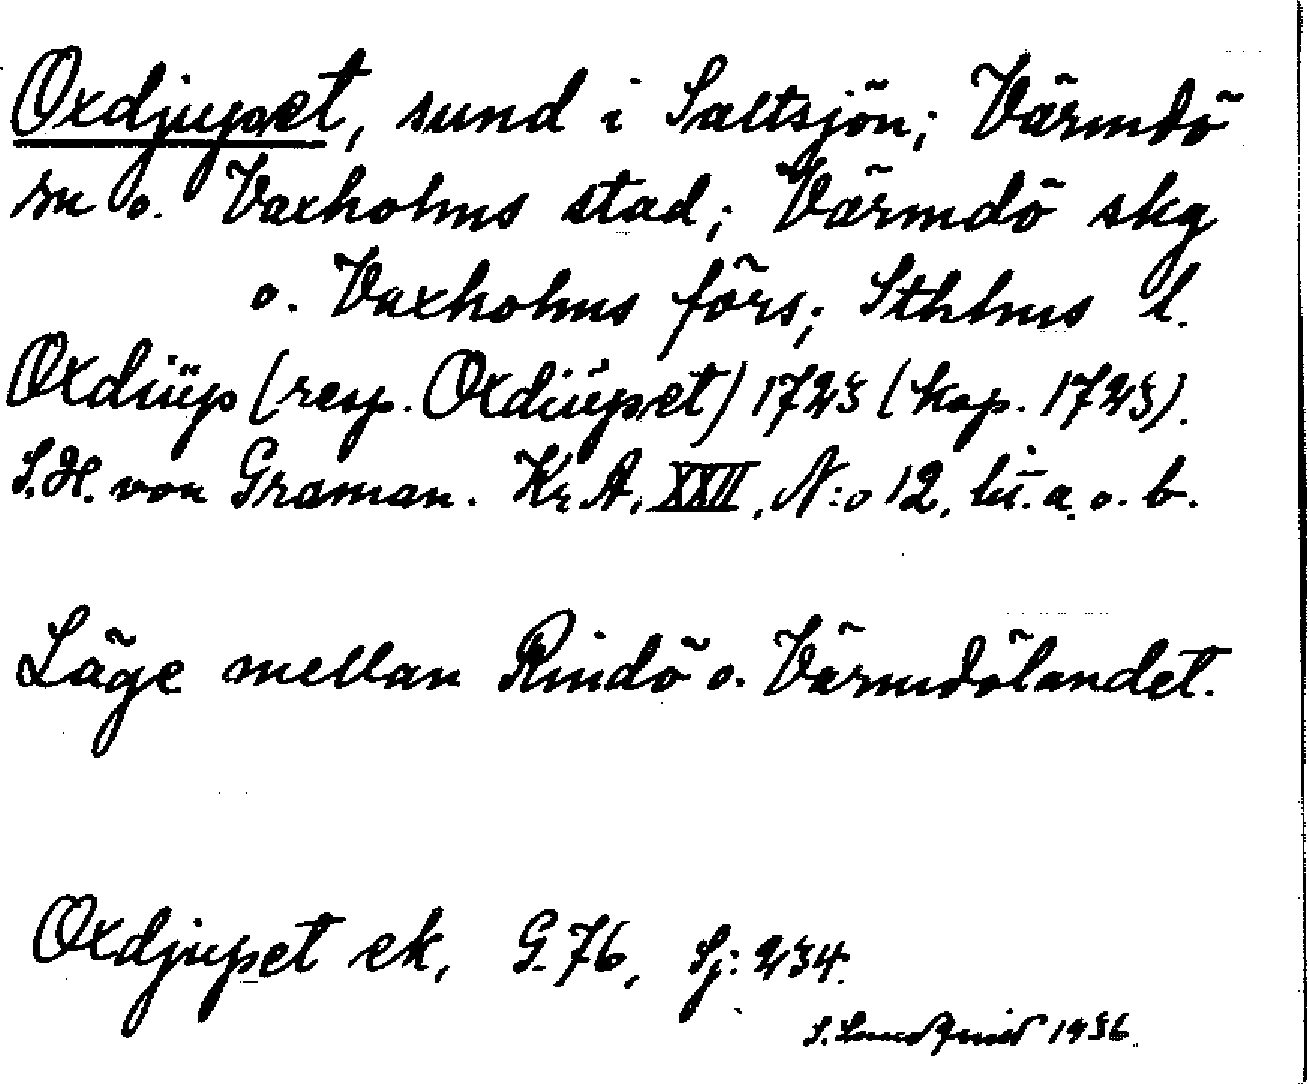 Oxdjupet, sund i Saltsjön; Värmdö
sn o. Vaxholms stad; Värmdö skg
o. Vaxholms förs; Sthlms l.
Oxdiüp (resp. Oxdiüpet) 1723 (kop. 1723).
S.H. von Graman. Kr A, XXII, N:o 12, lit. a. o. b.
Läge mellan Rindö o. Värmdölandet.
Oxdjupet ek, G. 76, Sj: 234.
S. 1936